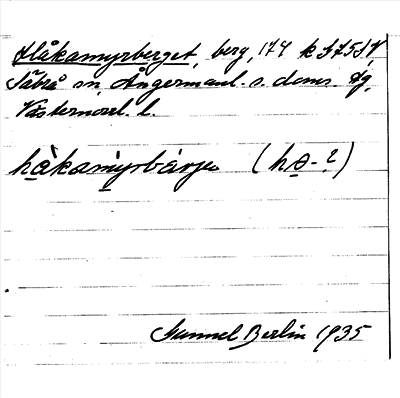 Håkamyrberget, berg, 174 k S75S,V
Säbrå sn, Ångermanl. s. doms. dg,
Västernorrl. l.
håkamyrbärje (hω-?)
Gunnel Berlin 1935